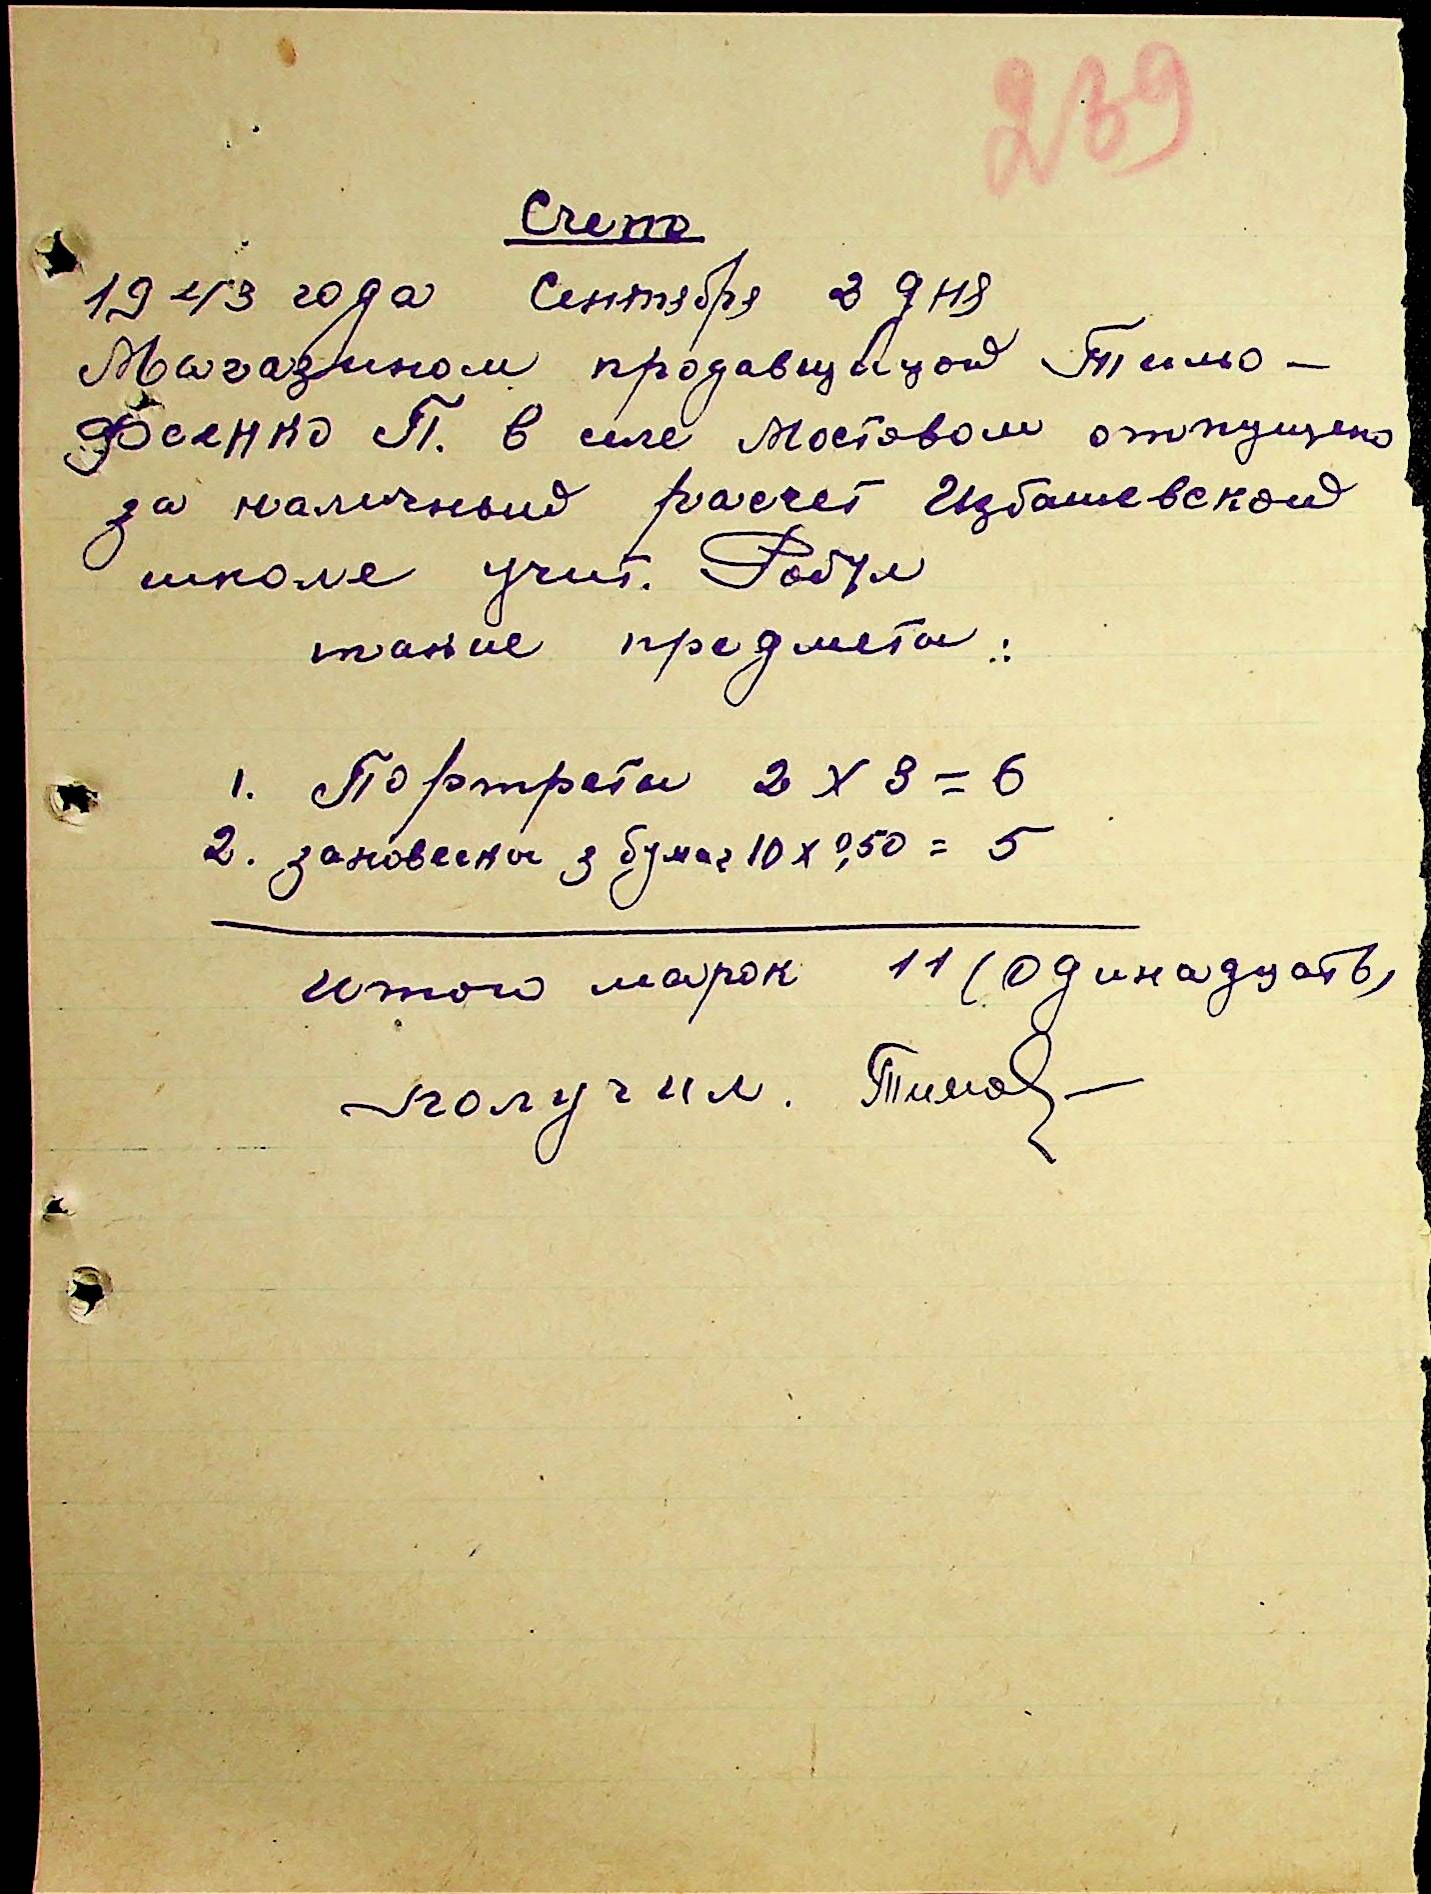 239
Счет
1943 года Сентября 3 дня
Магазином продавщицой Тимо-
фсенко П. в селе Мостовом отпущено
за наличный расчет Избашевской
школе учит. Робул
такие предметы:
1. Портреты 2 х 3 = 6
2. зановески з бумаг 10 х 0,50 = 5
Итого марок 11 (Одинадцать)
получил. Тимоф